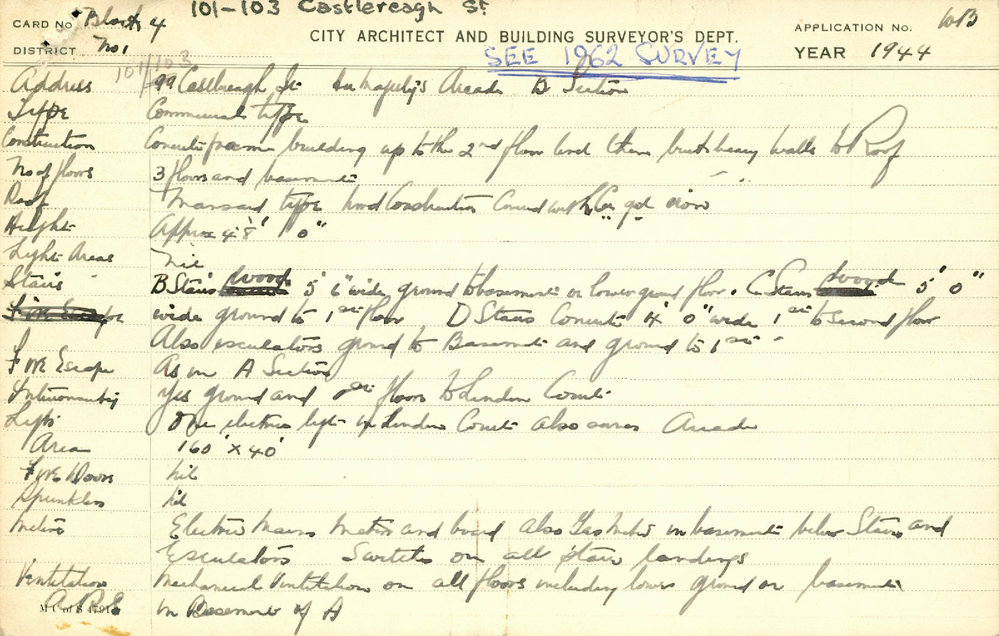 101-103 Castlereagh St
CARD No. Block 4
CITY ARCHITECT AND BUILDING SURVEYOR'S DEPT.
APPLICATION No. WB
DISTRICT No 1
SEE 1962 SURVEY
YEAR 1944
101/103
Address 99 Castlereagh St Her Majesty's Arcade B Section
Type Commercial type
Construction Concrete frame building up to the 2nd floor and then brick heavy walls to Roof
No of floors 3 floors and basement
Roof Mansard type wood Construction Covered with Cor gal iron
Height Approx 48' 0"
Light Areas Nil
Stairs B Stairs wood 5' 6" wide ground to basement or lower ground floor. C Stairs wood 5' 0"
Fire Escape wide ground to 1st floor D Stairs Concrete 4' 0" wide 1st to second floor
Also esculators ground to Basement and ground to 1st
Fire Escape As in A Section
Yes ground and floors to Lindon Court
Lifts One electric lift in Lindon Court also serves Arcade
Area 160' x 40'
Fire Doors nil
Sprinklers nil
Meters Electric Mains Meters and board also Gas Meter in basement below Stairs and
Esculators Switches on all stair landings
Ventilation Mechanical Ventilation on all floors including lower ground or basement
A.R.S. in Basement of A
M C of S